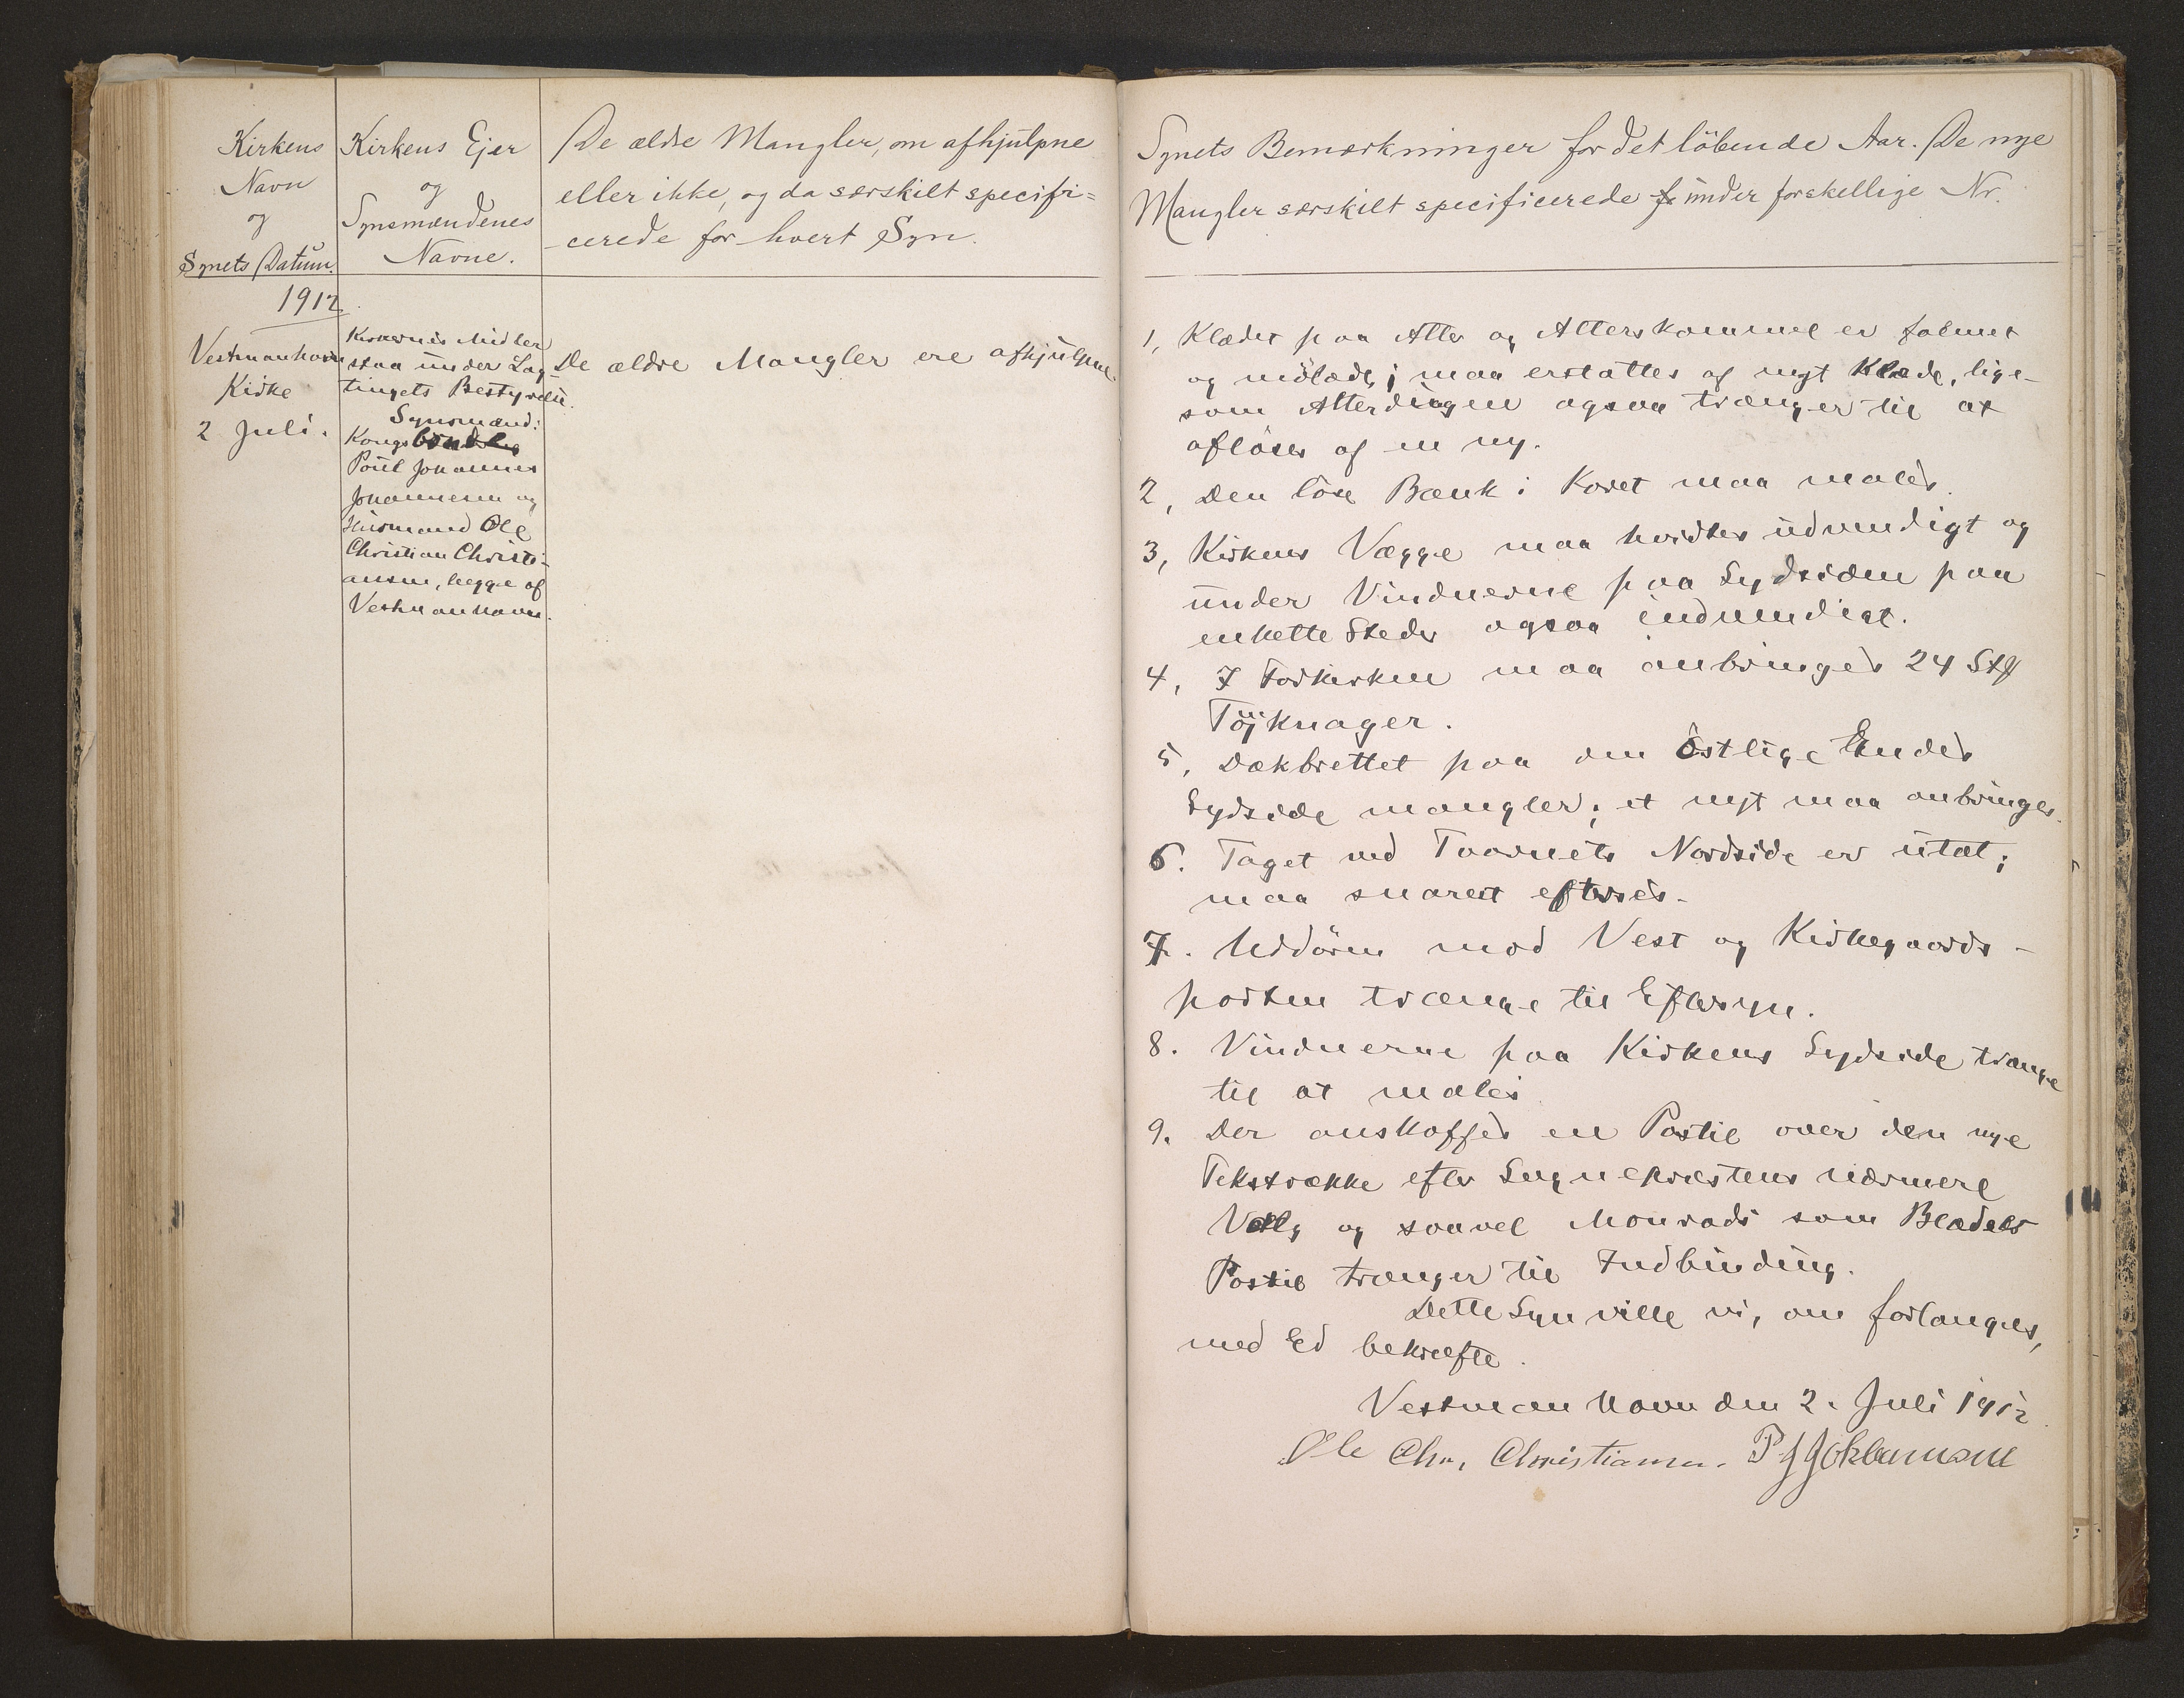 Kirkens
Navn
og
Synets Datum.
Kirkens Ejer
og
Synsmændenes
Navne.
De ældre Mangler, om afhjulpne
eller ikke, og da særskilt specifi=
cerede for hvert Syn.
1912
Vestmanhavn
Kirke
2 Juli.
Kirkernes Midler
staa under Lag-
tingets Bestyrelse.
Synsmænd:
Kongsbönder
Poul Johannes
Johannesen og
Husmand Ole
Christian Christi-
ansen, begge af
Vestmanhavn.
De ældre Mangler ere afhjulpne.
Synets Bemærkninger for det löbende Aar. De nye
Mangler særskilt specificerede under forskellige Nr.
1, Klædet paa Alter og Alterskammel er falmet
og mölædt; maa erstattes af nyt Klæde, lige-
som Alterdugen ogsaa trænger til at
aflöses af en ny.
2, Den löse Bænk i Koret maa males.
3, Kirkens Vægge maa hvidtes udvendigt og
under Vinduerne paa Sydsiden paa
enkelte Steder ogsaa indvendigt.
4, I Forkirken maa anbringes 24 Stk
Töjknager.
5, Dækbrettet paa den östlige Endes
Sydside mangler; et nyt maa anbringes.
6. Taget ved Taarnets Nordside er utæt;
maa snarest efterses.
7. Uddören mod Vest og Kirkegaards-
porten trænge til Eftersyn.
8. Vinduerne paa Kirkens Sydside trænge
til at males
9. Der anskaffes en Postil over den nye
Tekstrække efter Sognepræstens nærmere
Valg og saavel Monrads som Blædels
Postil trænger til Indbinding.
Dette Syn ville vi, om forlanges,
med Ed bekræfte.
Vestmanhavn den 2. Juli 1912
Ole Chr. Christiansen. P J Johannesen